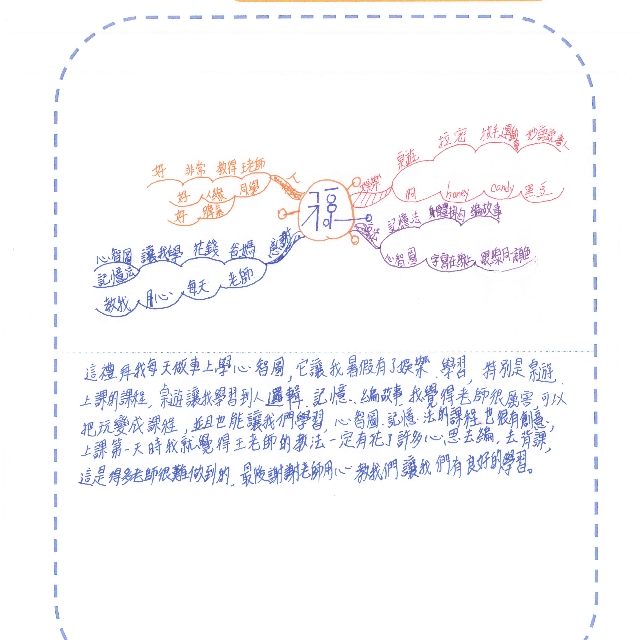 福
人
好 非常 教得 王老師
好 人緣 同學
好
感謝
心智圖 讓我學 花錢 爸媽
記憶法
教我 用心 每天 老師
娛樂
桌遊
拉密
honey candy
記憶法 編故事
心智圖
這禮拜我每天做車上學心智圖,它讓我暑假有了娛樂、學習,特別是桌遊
上課的課程,桌遊讓我學習到人邏輯、記憶、編故事我覺得老師很厲害可以
把玩變成課程,並且也能讓我們學習,心智圖、記憶法的課程也很有創意,
上課第一天時我就覺得王老師的教法一定有花了許多心思去編,去背課,
這是得多老師很難做到的,最後謝謝老師用心教我們讓我們有良好的學習。